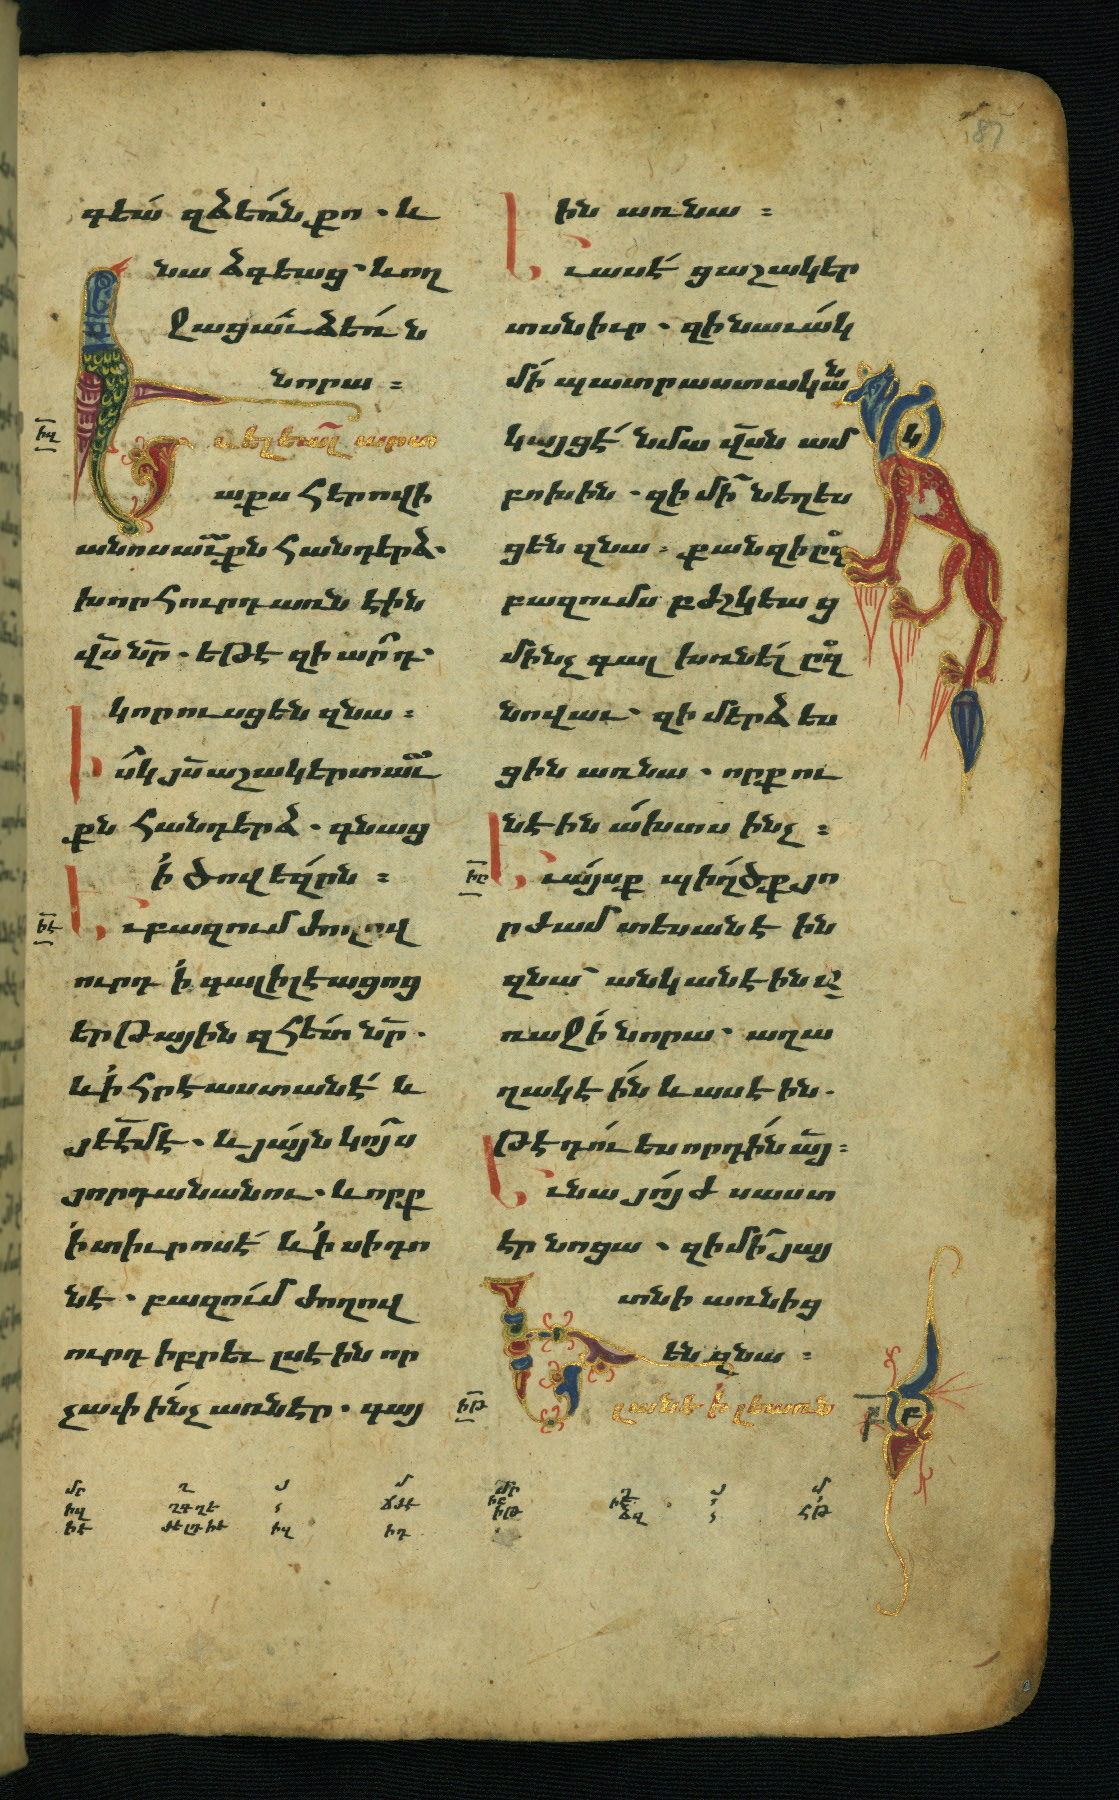 87
գեա՛ զձեռն քո . և
նա ձգեաց՝ և ող
ջացաւ ձեռն
նորա ։
իզ
Ել ելեալ արտ
աքս հերովդի
անոսաւքն հանդերձ.
խորհուրդ առն էին
վս նր . եթէ զիարդ
կորուսցեն զնա ։
Իսկ յս աշակերտաւ
քն հանդերձ . գնաց
ի ծովեզրն ։
իէ
Եւ բազում ժողով
ուրդ ի գալիլեացոց
երթային զհետ նր .
և ի հրէաստանէ և
յեէմէ . և յայն կոյս
յորդանանու . և որք
ի տիւրոսէ և ի սիդո
նէ . բազում ժողով
ուրդ իբրեւ լսէին որ
չափ ինչ առնէր . գայ
ին առ նա ։
Եւ ասէ ցաշակեր
տսն իւր . զի նաւակ
մի պատրաստական
կայցէ նմա վսն ամ
բոխին . զի մի նեղես
ցեն զնա . քանզի ըզ
բազումս բժշկեաց
մինչ գալ խռնել ըզ
նովաւ . զի մերձես
ցին առ նա . որք ու
նէին ախտս ինչ ։
իը
Եւ այսք պիղծք յո
րժամ տեսանէին
զնա՝ անկանէին ա
ռաջի նորա . աղա
ղակէին և ասէին .
թէ դու ես որդին այ ։
Եւ նա յոյժ սաստ
էր նոցա . զի մի յայ
տնի առնից
են զնա ։
իթ
Ելանէ ի լեառն
կ
բ